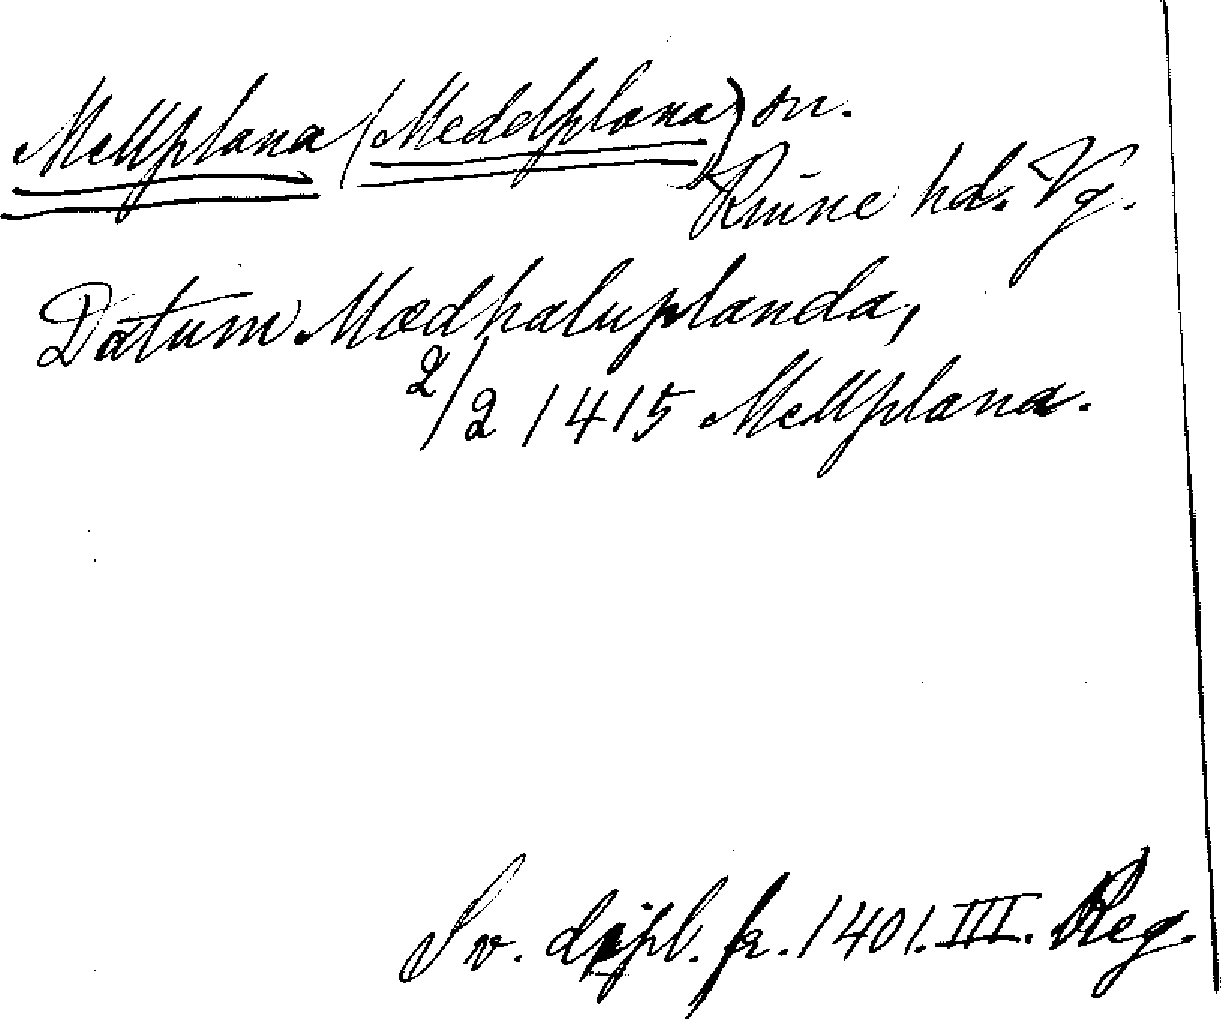 Mellplana (Medelplana) sn.
Kinne hd. Vg.
Datum Mædhaluplanda,
2/2 1415 Mellplana.
Sv. dipl. fr. 1401. III. Reg.